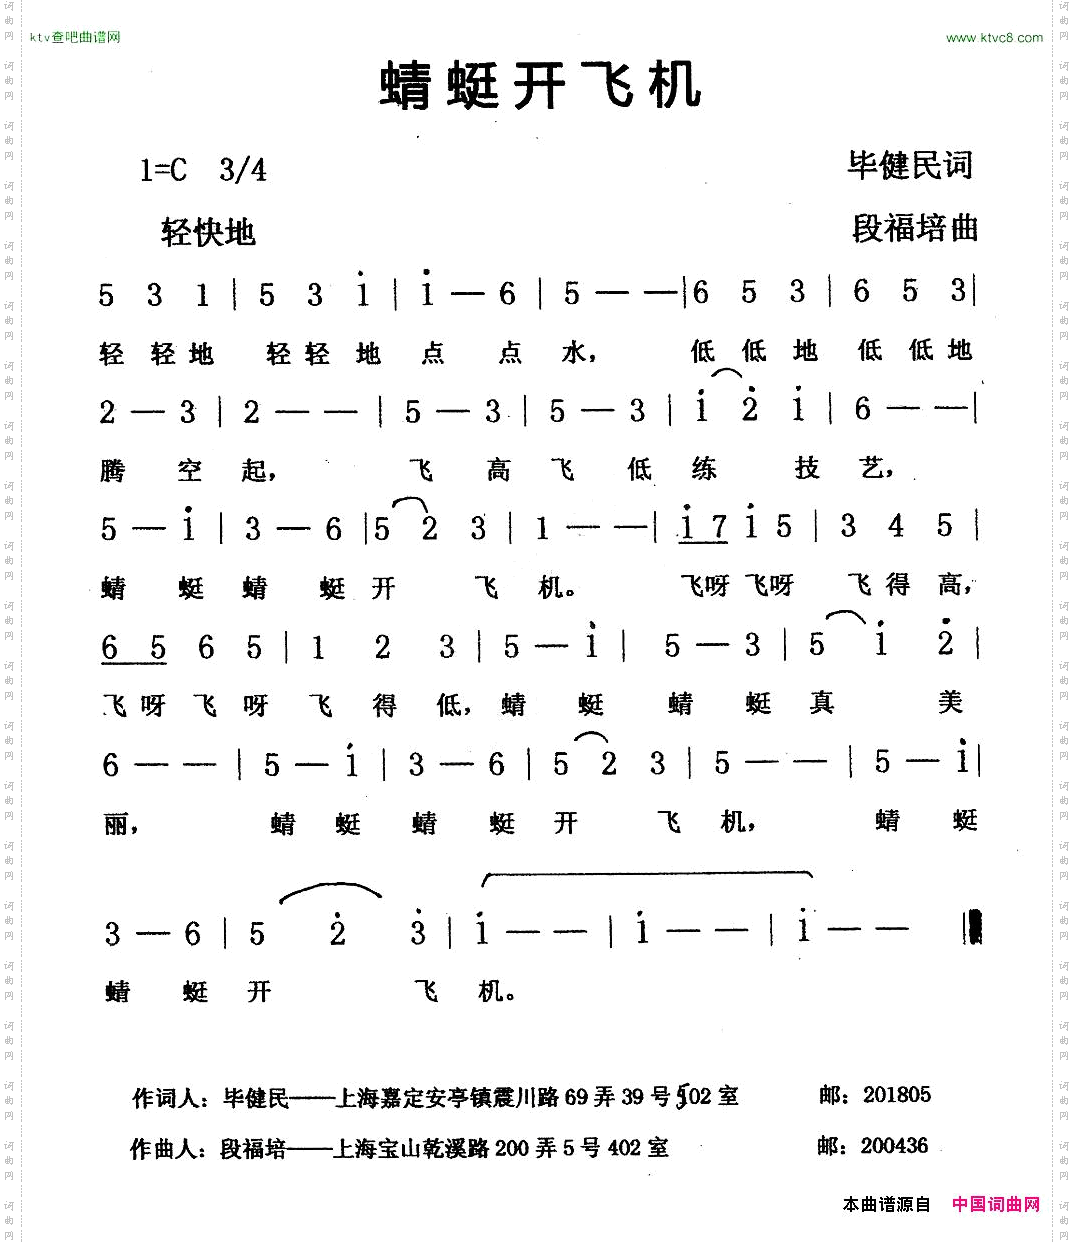 ktv查吧曲谱网 www.ktvc8.com
蜻蜓开飞机
1=C 3/4 毕健民词
轻快地 段福培曲
5 3 1 | 5 3 i | i — 6 | 5 — — | 6 5 3 | 6 5 3 |
轻 轻 地 轻 轻 地 点 点 水， 低 低 地 低 低 地
2 — 3 | 2 — — | 5 — 3 | 5 — 3 | i 2̇ i | 6 — — |
腾 空 起， 飞 高 飞 低 练 技 艺，
5 — i | 3 — 6 | 5 2 3 | 1 — — | i 7 i 5 | 3 4 5 |
蜻 蜓 蜻 蜓 开 飞 机。 飞呀 飞呀 飞 得 高，
6 5 6 5 | 1 2 3 | 5 — i | 5 — 3 | 5 i 2̇ |
飞 呀 飞 呀 飞 得 低， 蜻 蜓 蜻 蜓 真 美
6 — — | 5 — i | 3 — 6 | 5 2 3 | 5 — — | 5 — i |
丽， 蜻 蜓 蜻 蜓 开 飞 机， 蜻 蜓
3 — 6 | 5 2̇ 3̇ | i — — | i — — | i — — ‖
蜻 蜓 开 飞 机。
作词人：毕健民——上海嘉定安亭镇震川路 69 弄 39 号 502 室 邮：201805
作曲人：段福培——上海宝山乾溪路 200 弄 5 号 402 室 邮：200436
本曲谱源自 中国词曲网